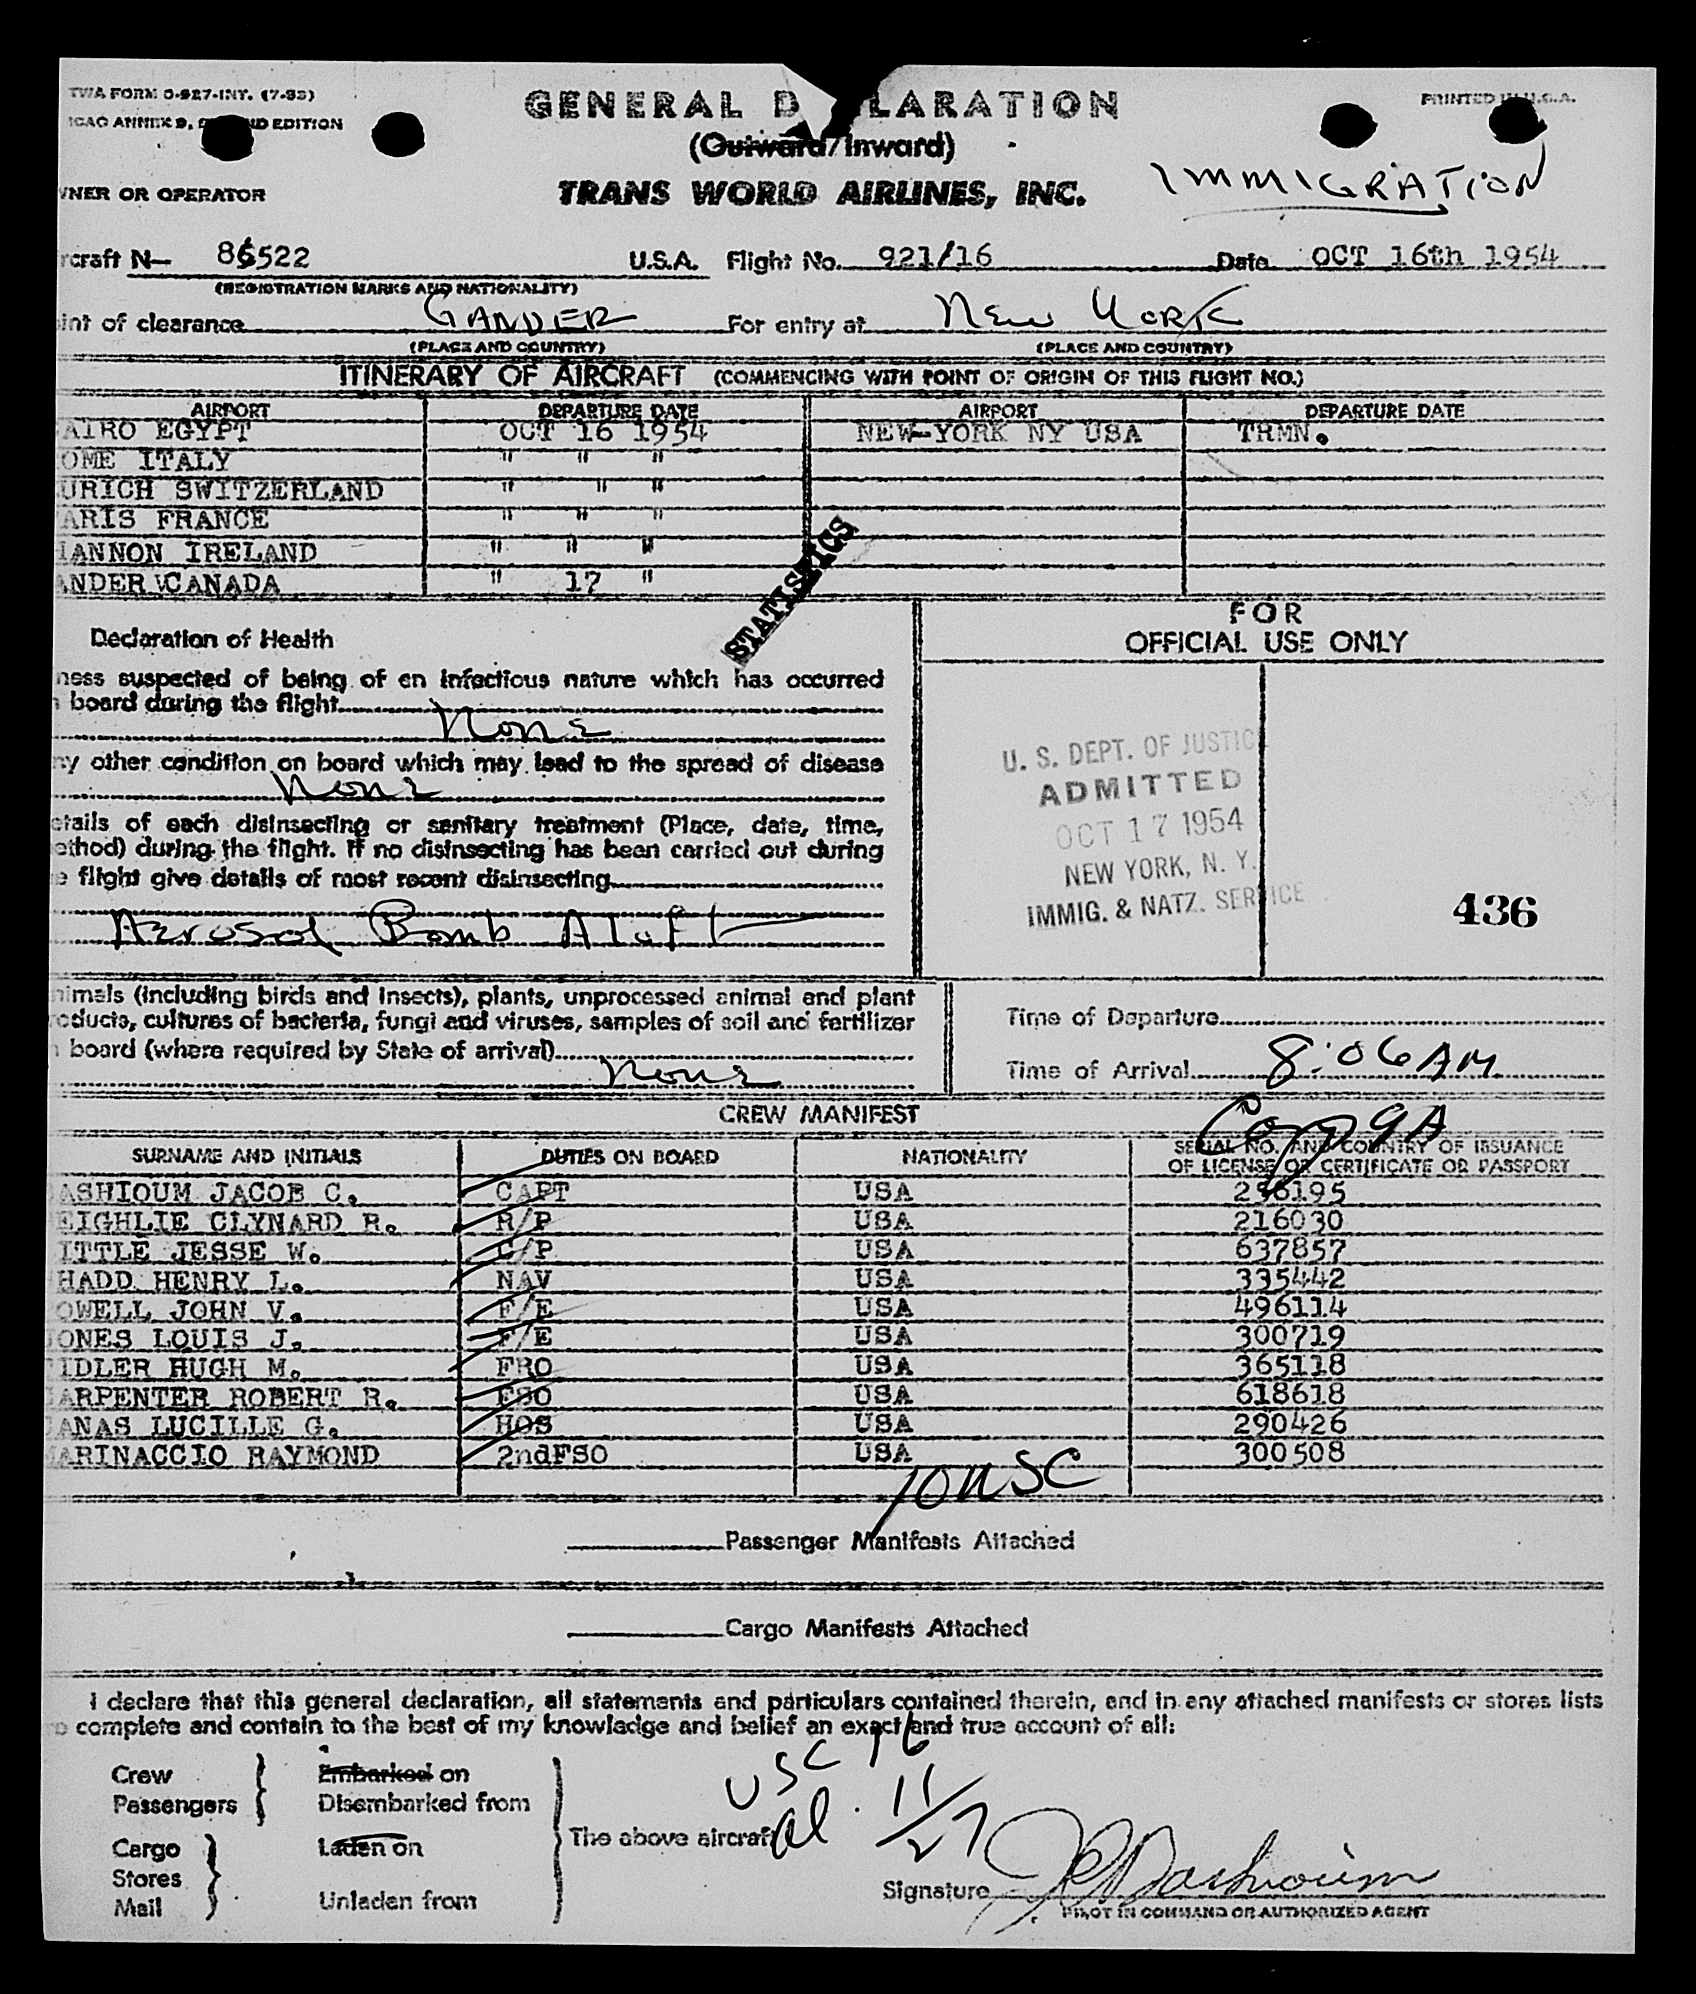 TWA FORM O-927-INT. (7-53)
ICAO ANNEX 9, EDITION
PRINTED IN U.S.A.
GENERAL D LARATION
(Outward/Inward)
IMMIGRATION
WNER OR OPERATOR
TRANS WORLD AIRLINES, INC.
rcraft N— 86522 U.S.A. Flight No. 921/16 Date OCT 16th 1954
(REGISTRATION MARKS AND NATIONALITY)
int of clearance GANDER For entry at New York
(PLACE AND COUNTRY) (PLACE AND COUNTRY)
ITINERARY OF AIRCRAFT (COMMENCING WITH POINT OF ORIGIN OF THIS FLIGHT NO.)
AIRPORT DEPARTURE DATE AIRPORT DEPARTURE DATE
AIRO EGYPT OCT 16 1954 NEW-YORK NY USA TRMN.
OME ITALY " " "
URICH SWITZERLAND " " "
ARIS FRANCE " " "
HANNON IRELAND " " "
ANDER CANADA " 17 "
STATISTICS
FOR
OFFICIAL USE ONLY
Declaration of Health
ness suspected of being of an infectious nature which has occurred
n board during the flight
None
ny other condition on board which may lead to the spread of disease
None
etails of each disinsecting or sanitary treatment (Place, date, time,
ethod) during the flight. If no disinsecting has been carried out during
e flight give details of most recent disinsecting
Aerosol Bomb Aloft
U. S. DEPT. OF JUSTICE
ADMITTED
OCT 17 1954
NEW YORK, N. Y.
IMMIG. & NATZ. SERVICE
436
nimals (including birds and insects), plants, unprocessed animal and plant
roducts, cultures of bacteria, fungi and viruses, samples of soil and fertilizer
n board (where required by State of arrival)
None
Time of Departure
Time of Arrival 8:06 AM
CREW MANIFEST
SURNAME AND INITIALS DUTIES ON BOARD NATIONALITY SERIAL NO. AND COUNTRY OF ISSUANCE
OF LICENSE OR CERTIFICATE OR PASSPORT
ASHIOUM JACOB C. CAPT USA 256195
EIGHLIE CLYNARD R. R/P USA 216030
ITTLE JESSE W. C/P USA 637857
HADD HENRY L. NAV USA 335442
OWELL JOHN V. F/E USA 496114
JONES LOUIS J. F/E USA 300719
IDLER HUGH M. FRO USA 365118
ARPENTER ROBERT R. FSO USA 618618
ANAS LUCILLE G. HOS USA 290426
MARINACCIO RAYMOND 2ndFSO USA 300508
10 USC
Passenger Manifests Attached
Cargo Manifests Attached
I declare that this general declaration, all statements and particulars contained therein, and in any attached manifests or stores lists
o complete and contain to the best of my knowledge and belief an exact and true account of all:
USC 16
al. 11/27
Crew
Passengers
Embarked on
Disembarked from
Cargo
Stores
Mail
Laden on
Unladen from
The above aircraft
Signature JC Bashioum
PILOT IN COMMAND OR AUTHORIZED AGENT